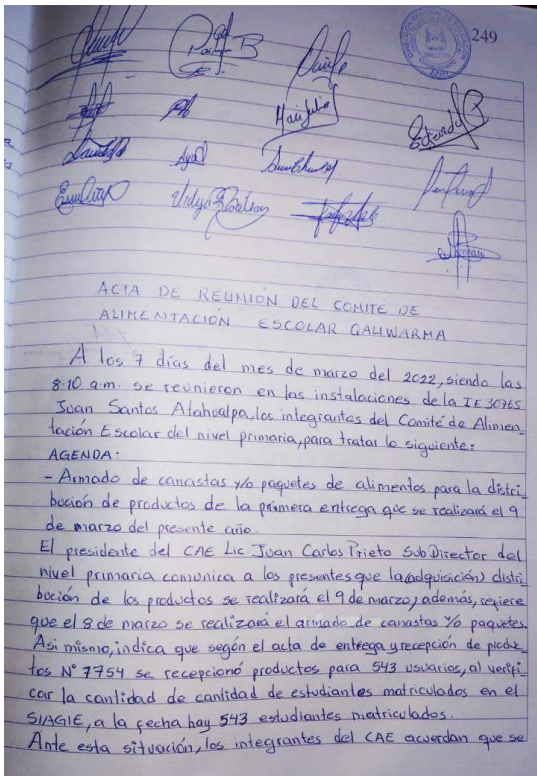 249
Mari Julia
ACTA DE REUNIÓN DEL COMITE DE
ALIMENTACIÓN ESCOLAR QALIWARMA
A los 7 días del mes de marzo del 2022, siendo las
8:10 a.m. se reunieron en las instalaciones de la IE 30765
Juan Santos Atahualpa, los integrantes del Comité de Alimen-
tación Escolar del nivel primaria, para tratar lo siguiente:
AGENDA:
- Armado de canastas y/o paquetes de alimentos para la distri-
bución de productos de la primera entrega que se realizará el 9
de marzo del presente año.
El presidente del CAE Lic. Juan Carlos Prieto Sub Director del
nivel primaria comunica a los presentes que la (adquisición) distri-
bución de los productos se realizará el 9 de marzo; además, refiere
que el 8 de marzo se realizará el armado de canastas y/o paquetes.
Asi mismo, indica que según el acta de entrega y recepción de produc-
tos N° 7754 se recepcionó productos para 543 usuarios, al verifi-
car la cantidad de cantidad de estudiantes matriculados en el
SIAGIE, a la fecha hay 543 estudiantes matriculados.
Ante esta situación, los integrantes del CAE acuerdan que se